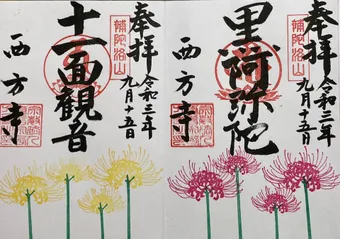 奉拝
補陀洛山
令和三年
九月十五日
彌陀
西方寺
奉拝
補陀洛山
令和三年
九月十五日
十一面観音
西方寺